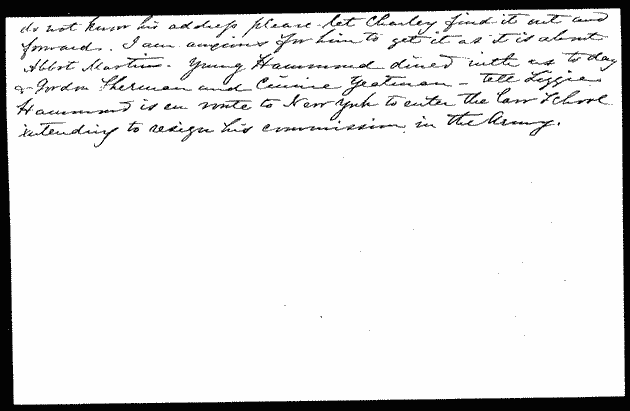 do not know his address please let Charley find it out and
forward. I am anxious for him to get it as it is about
Abbot Martins. Young Hammond dined with us to day
& Gordon Sherman and Yeatman - tell Lizzie
Hammond is en route to New York to enter the law School
intending to resign his commission in the Army.